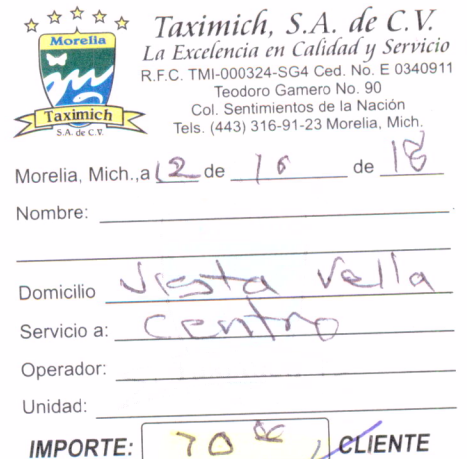 Morelia
Taximich
S.A. de C.V.
Taximich, S.A. de C.V.
La Excelencia en Calidad y Servicio
R.F.C. TMI-000324-SG4 Ced. No. E 0340911
Teodoro Gamero No. 90
Col. Sentimientos de la Nación
Tels. (443) 316-91-23 Morelia, Mich.
Morelia, Mich.,a 12 de 10 de 18
Nombre:
Domicilio Viesta Vella
Servicio a: Centro
Operador:
Unidad:
IMPORTE: 70 CLIENTE